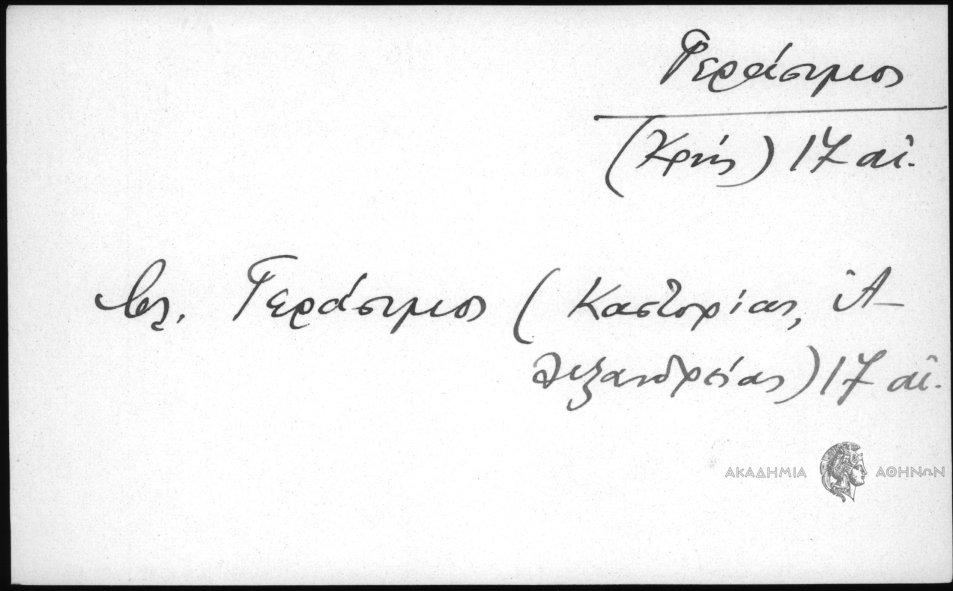 Γεράσιμος
(Κρής) 17 αἰ.
βλ. Γεράσιμος (Καστορίας, Ἀ-
λεξανδρείας) 17 αἰ.
ΑΚΑΔΗΜΙΑ ΑΘΗΝΩΝ